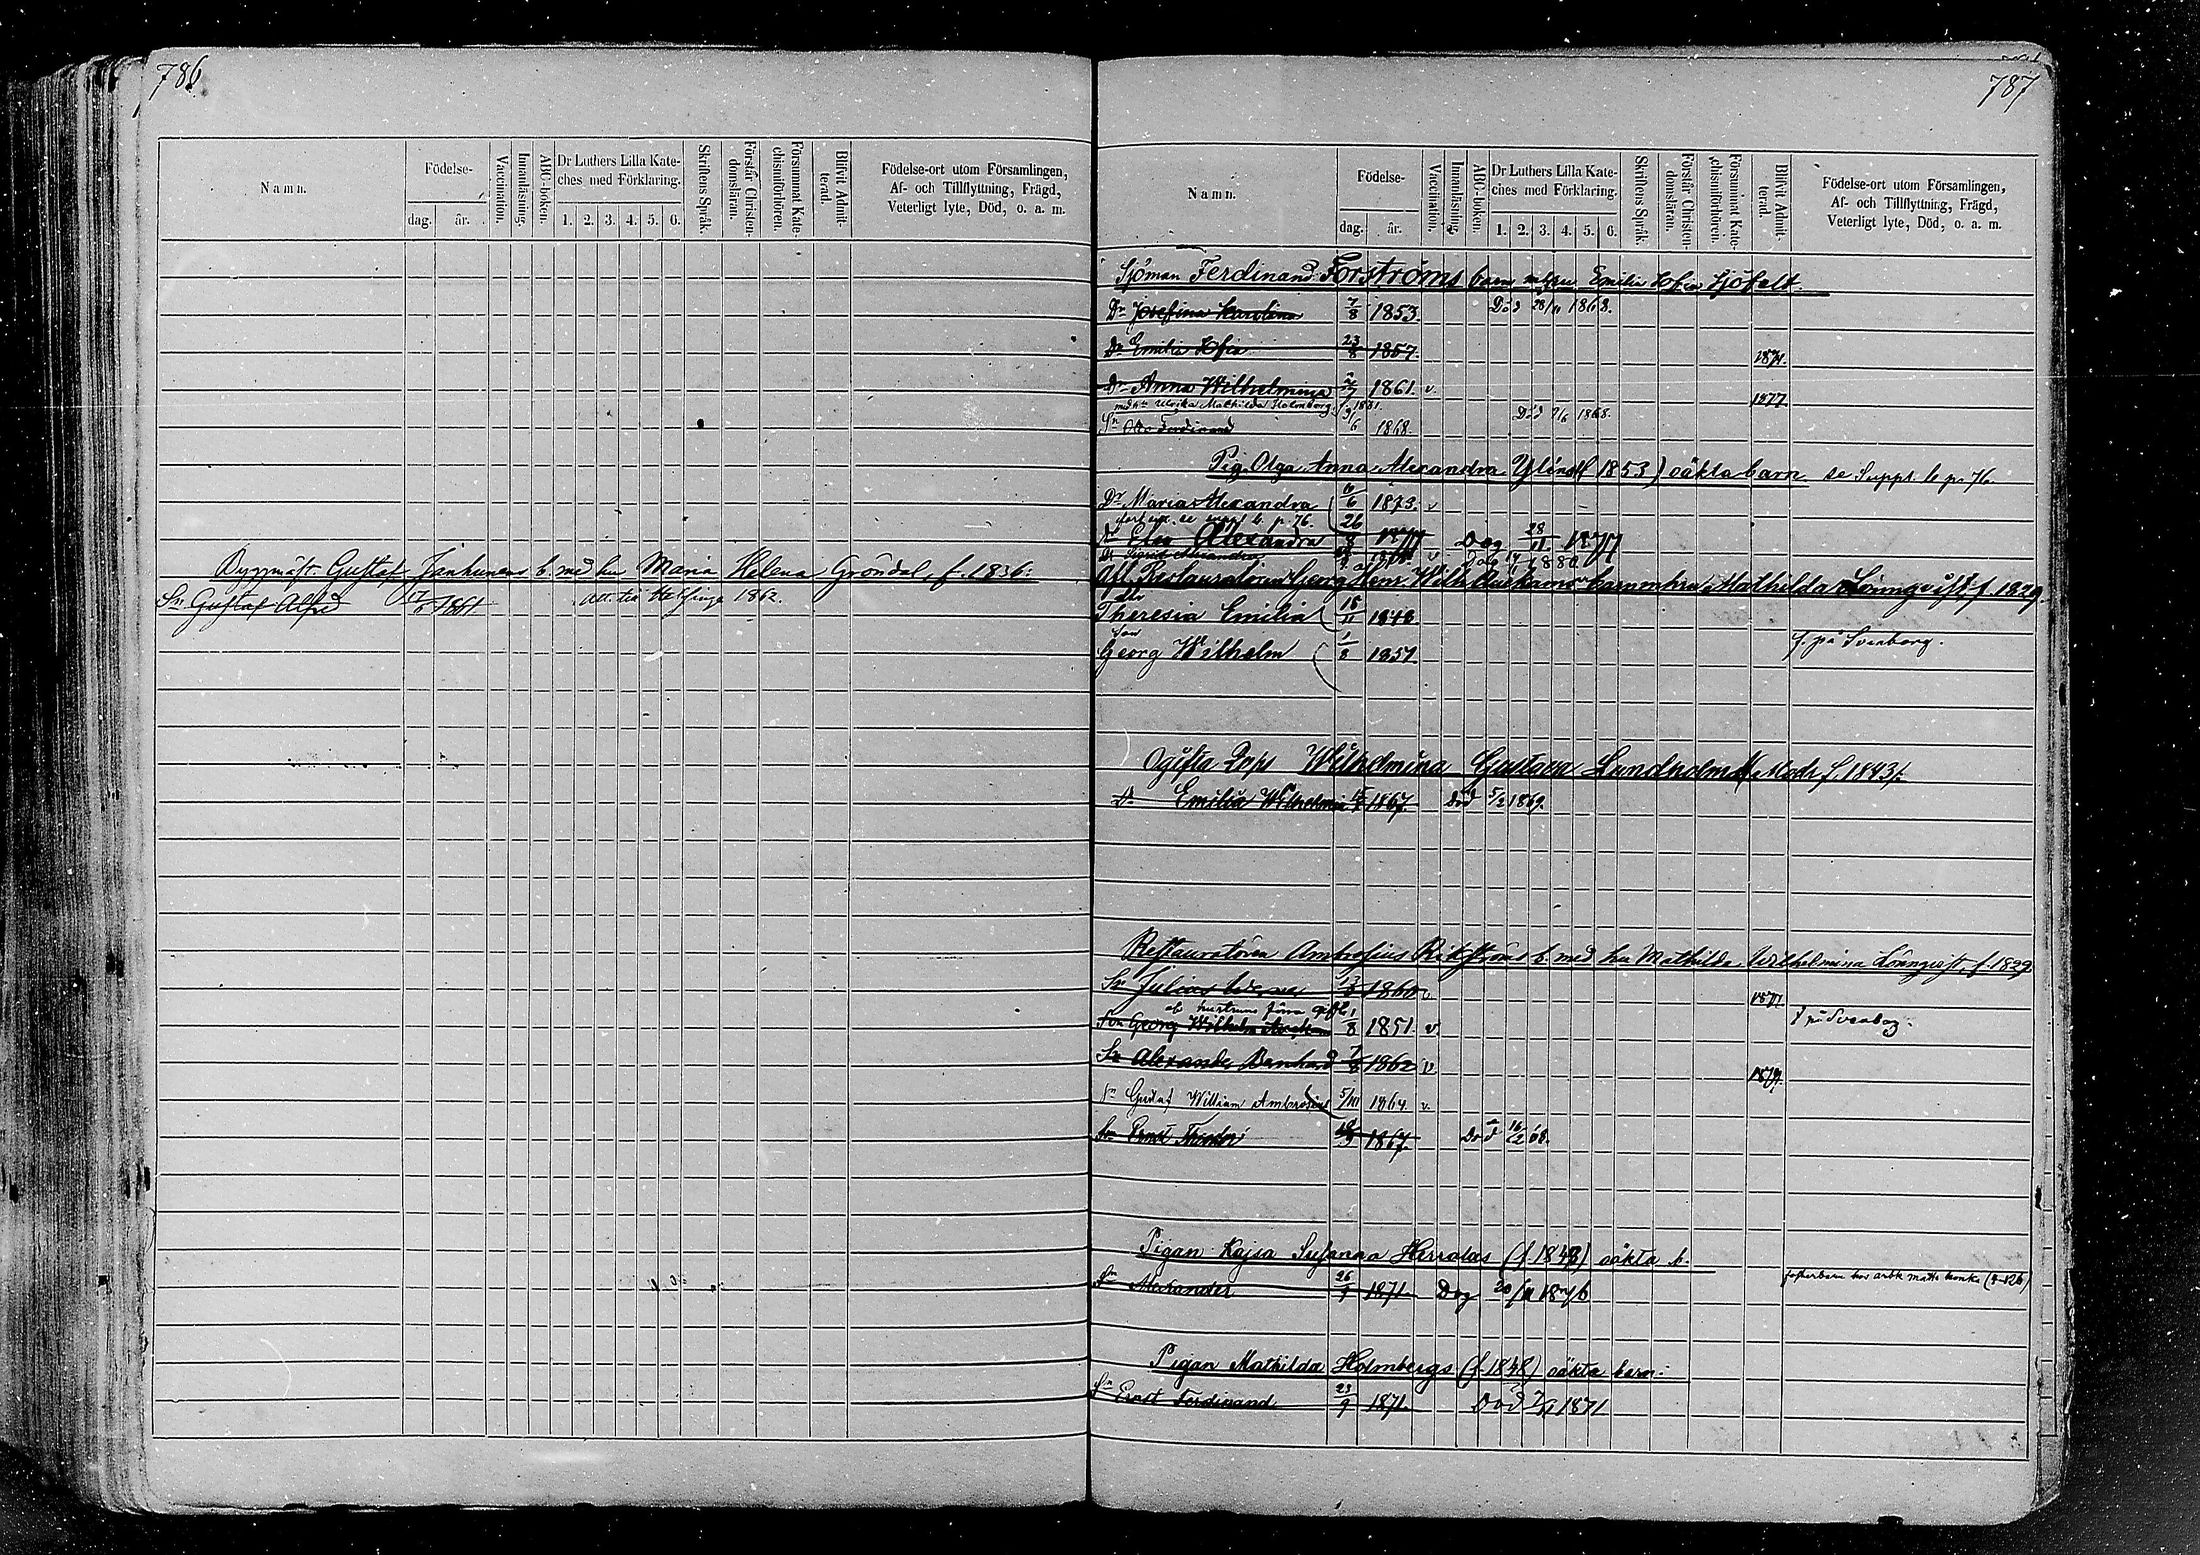 786
Namn.
Födelse-
dag.
år.
Vaccination.
Innanläsning.
ABC-boken.
Dr Luthers Lilla Kate-
ches med Förklaring.
1. 2. 3. 4. 5. 6.
Skriftens Språk.
Förstår Christen-
domsläran.
Försummat Kate-
chismiförhören.
Blifvit Admit-
terad.
Födelse-ort utom Församlingen,
Af- och Tillflyttning, Frägd,
Veterligt lyte, Död, o. a. m.
Byggmäst. Gustaf Jankunens b. med hu Maria Helena Gröndal, f. 1836.
Sn Gustaf Alfrd 1861 att. till Helsinge 1862.
787
Namn.
Födelse-
dag.
år.
Vaccination.
Innanläsning.
ABC-boken.
Dr Luthers Lilla Kate-
ches med Förklaring.
1. 2. 3. 4. 5. 6.
Skriftens Språk.
Förstår Christen-
domsläran.
Försummat Kate-
chismiförhören.
Blifvit Admit-
terad.
Födelse-ort utom Församlingen,
Af- och Tillflyttning, Frägd,
Veterligt lyte, Död, o. a. m.
Sjöman Ferdinand Forströms barn m hu Emilia Sofia Sjöfelt.
Dr Josefina Karolina 7/8 1853. Död 28/11 1868.
Dr Emilia Sofia 23/8 1857. 1874.
Dr Anna Wilhelmina 2/7 1861. v. 1877
med hu Ulrika Mathilda Holmberg f. 1831.
Sn Otto Ferdinand 9/6 1868. Död 9/6 1868.
Pig. Olga Anna Alexandra (1853) oäkta barn se Suppl. b p. 76
Dr Maria Alexandra 6/6 1873. v
p. 76.
Dr Elsa Alexandra 26/8 1877 Dog 28/11 1877
Dr Sigrid Alexandra v Dog 1880
Afl. Restauratören Georg Henr. Wilh. barn m hu Mathilda Lönnqvist f. 1829.
dtr
Theresia Emilia 18/11 1848.
son
Georg Wilhelm 1/8 1851. f. på Sveaborg.
Ogifta Wilhelmina Gustava Lundholm f. 1843.
Dr Emilia Wilhelmina 1867. Död 5/2 1869.
Restauratören Ambrosius Rikströms b. med hu Mathilda Wilhelmina Lönnqvist, f. 1829
Sn Julius 1860 v 1877
af hustruns förra gifte
son Georg Wilhelm 1/8 1851. v f. på Sveaborg.
Sn Alexander Bernhard 7/8 1862 v 1879.
Sn Gustaf William Ambrosius 5/III 1864. v.
Sn Ernst Theodor 1867 Död 16/2 68.
Pigan Kajsa Susanna Herralas (f 1848) oäkta b.
Sn Alexander 26/9 1871 Dog 20/11 1876 fosterbarn hos arbk. Matts
Pigan Mathilda Holmbergs (f 1848) oäkta barn:
Sn Ernst Ferdinand 23/9 1871. Död 1871